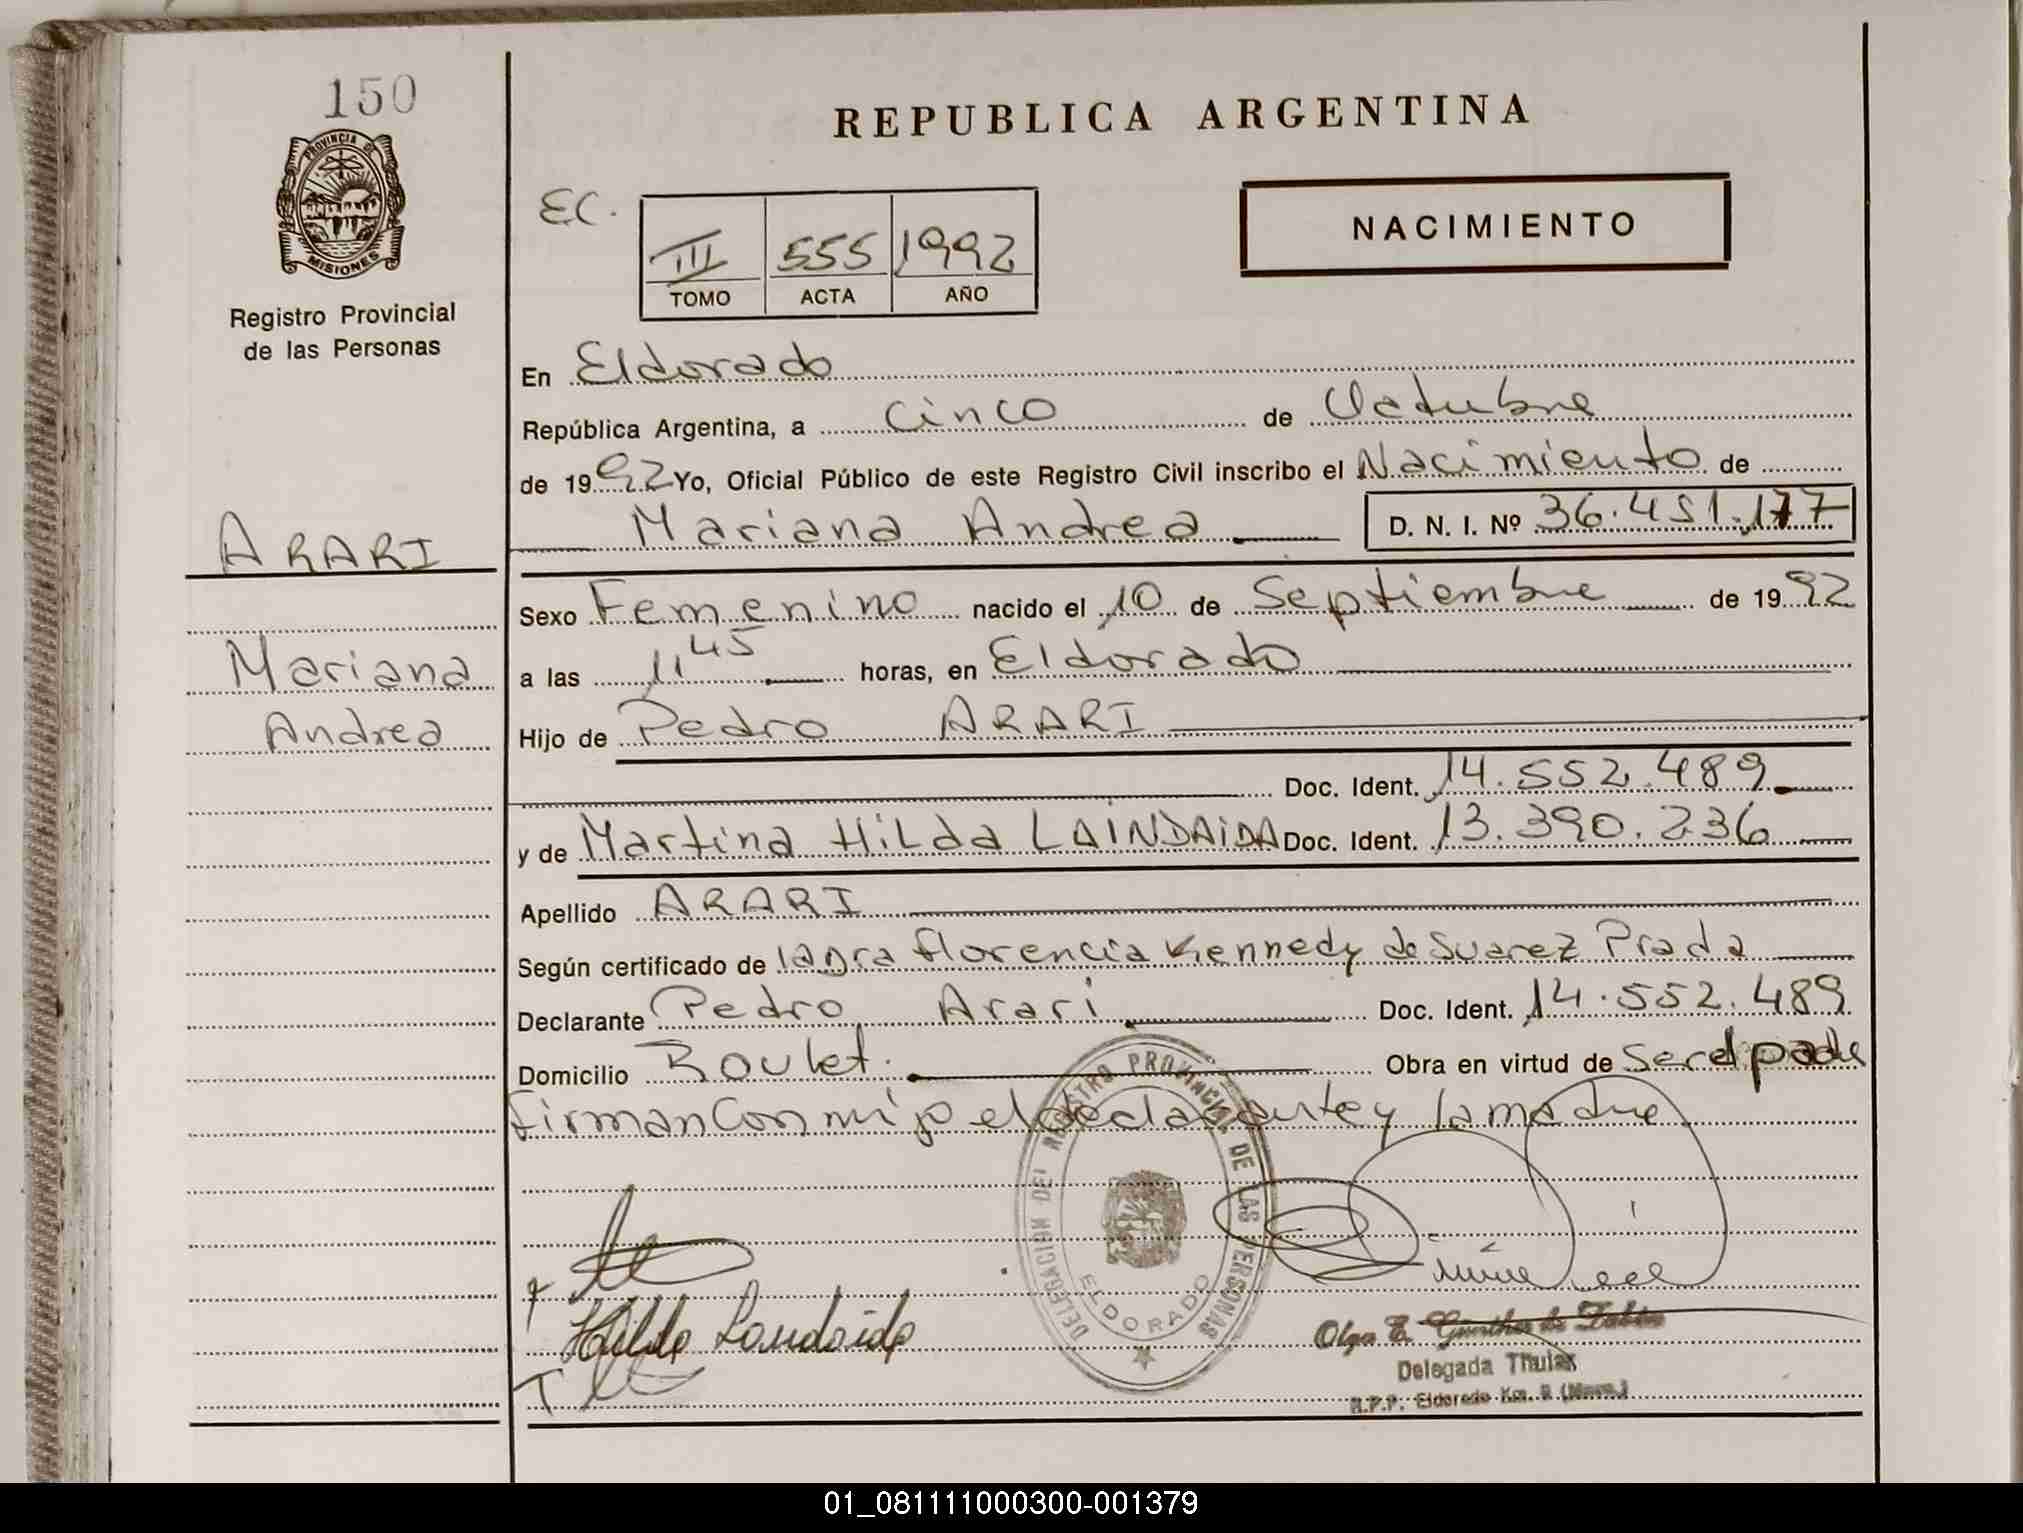 150
PROVINCIA DE
MISIONES
Registro Provincial
de las Personas
REPUBLICA ARGENTINA
EC.
III 555 1992
TOMO ACTA AÑO
NACIMIENTO
En Eldorado
República Argentina, a Cinco de Octubre
de 1992 Yo, Oficial Público de este Registro Civil inscribo el Nacimiento de
Mariana Andrea D. N. I. Nº 36.451.177
ARARI
Mariana
Andrea
Sexo Femenino nacido el 10 de Septiembre de 1992
a las 11 45 horas, en Eldorado
Hijo de Pedro ARARI
Doc. Ident. 14.552.489
y de Martina Hilda LAINDAIDA Doc. Ident. 13.390.236
Apellido ARARI
Según certificado de la Dra Florencia Kennedy de Suarez Prada
Declarante Pedro Arari Doc. Ident. 14.552.489
Domicilio Roulet. Obra en virtud de ser el padre
firman con migo el declarante y la madre
DELEGACION DEL REGISTRO PROVINCIAL DE LAS PERSONAS
ELDORADO
Hilda Landaida
Olga E. Günther de
Delegada Titular
R.P.P. Eldorado Km. 9 (Mnes.)
01_081111000300-001379